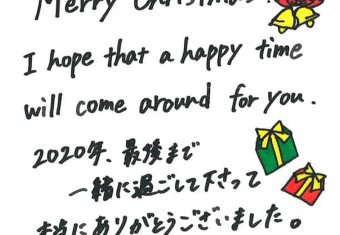 Merry Christmas
I hope that a happy time
will come around for you.
2020年、最後まで
一緒に過ごして下さって
本当にありがとうございました。